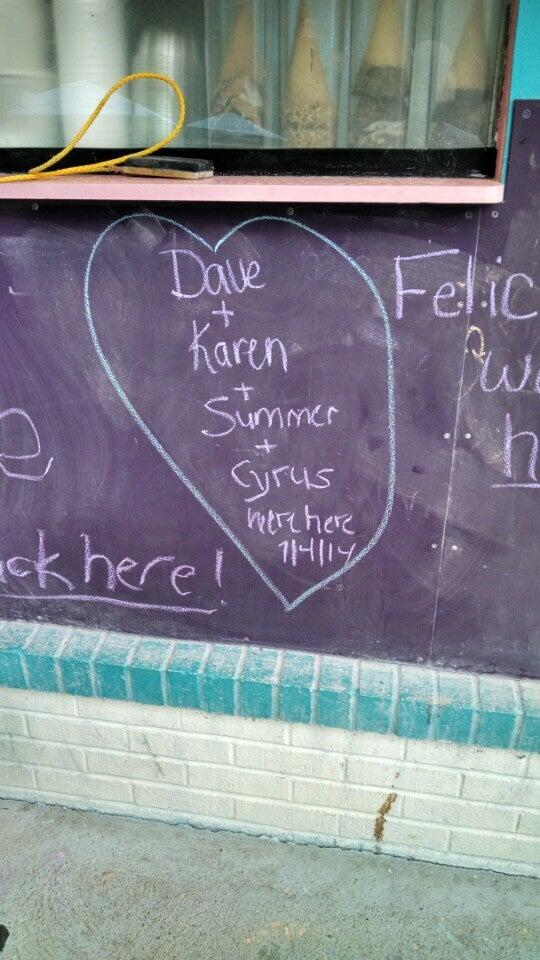 Dave
+
Karen
+
Summer
+
Cyrus
were here
7/4/14
Felic
wa
h
ck here!